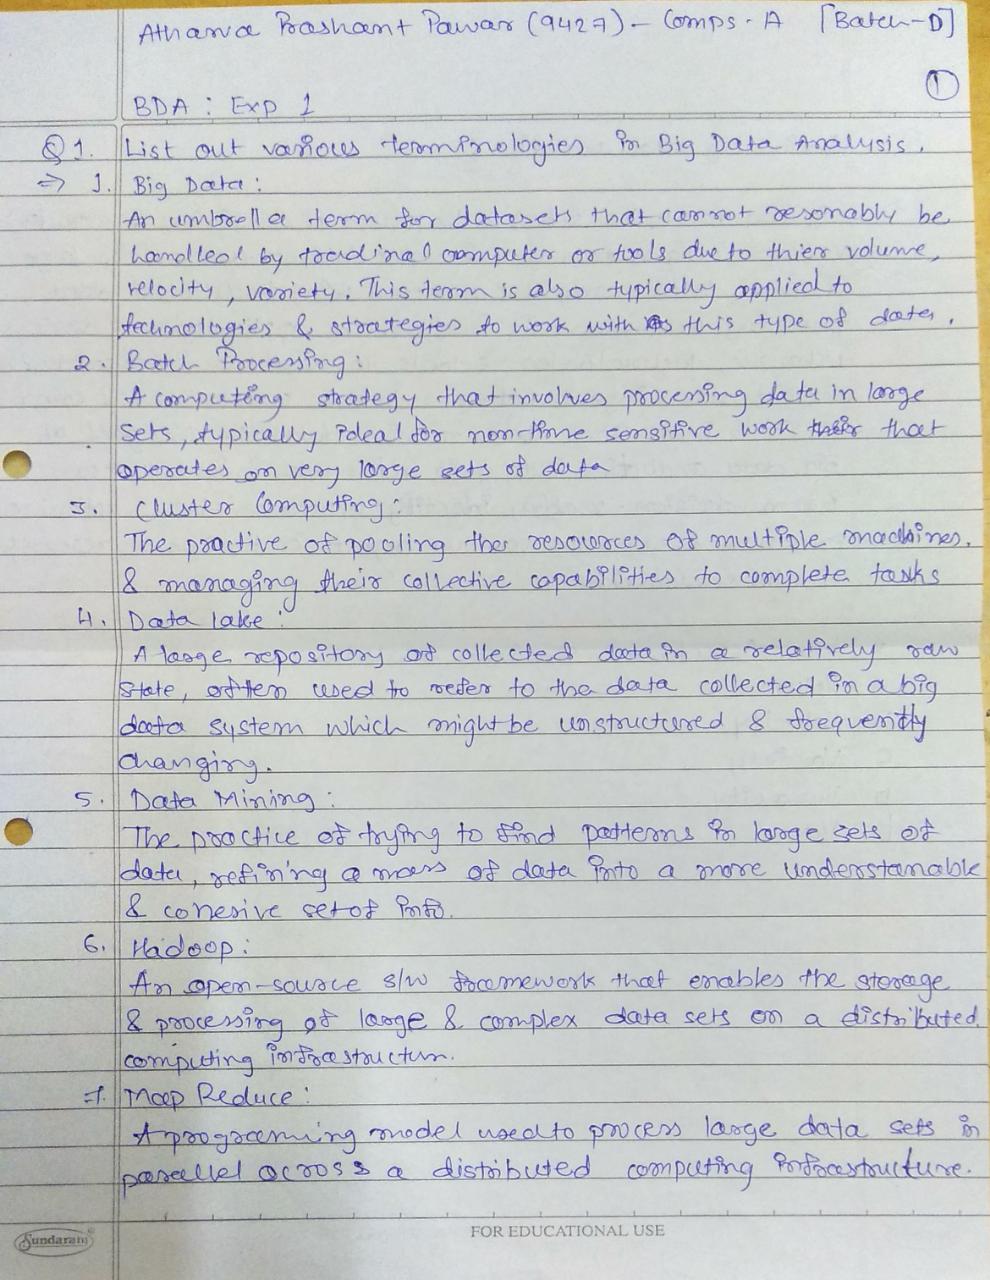 Atharva Prashant Pawar (9427) - Comps - A [Batch-D]
1
BDA : Exp 1
Q1. List out various terminologies in Big Data Analysis.
=> 1. Big Data :
An umbrella term for datasets that cannot resonably be
handled by tradinal computer or tools due to thier volume,
velocity, variety. This term is also typically applied to
technologies & strategies to work with this type of data.
2. Batch Processing :
A computing strategy that involves processing data in large
sets, typically ideal for non-time sensitive work that
operates on very large sets of data
3. Cluster Computing :
The practive of pooling the resources of multiple machines.
& managing their collective capabilities to complete tasks
4. Data lake :
A large repository of collected data in a relatively raw
state, often used to refer to the data collected in a big
data system which might be unstructured & frequently
changing.
5. Data Mining :
The practice of trying to find patterns in large sets of
data, refining a mass of data into a more understanable
& cohesive set of info.
6. Hadoop :
An open-source s/w framework that enables the storage
& processing of large & complex data sets on a distributed
computing infrastructur.
7. Map Reduce :
A programming model used to process large data sets in
parallel across a distributed computing infrastructure.
Sundaram
FOR EDUCATIONAL USE